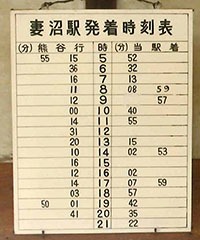 妻沼駅発着時刻表
(分) 熊谷行 時 (分) 当駅着
55 15 5 52
36 6 32
15 7 13
11 8 08 59
12 9 57
00 10 40
15 11 55
31 12
20 13 15
10 14 02 53
16 15
12 16 02
14 17 07 59
03 18 57
50 01 19 42
41 20 35
21 22